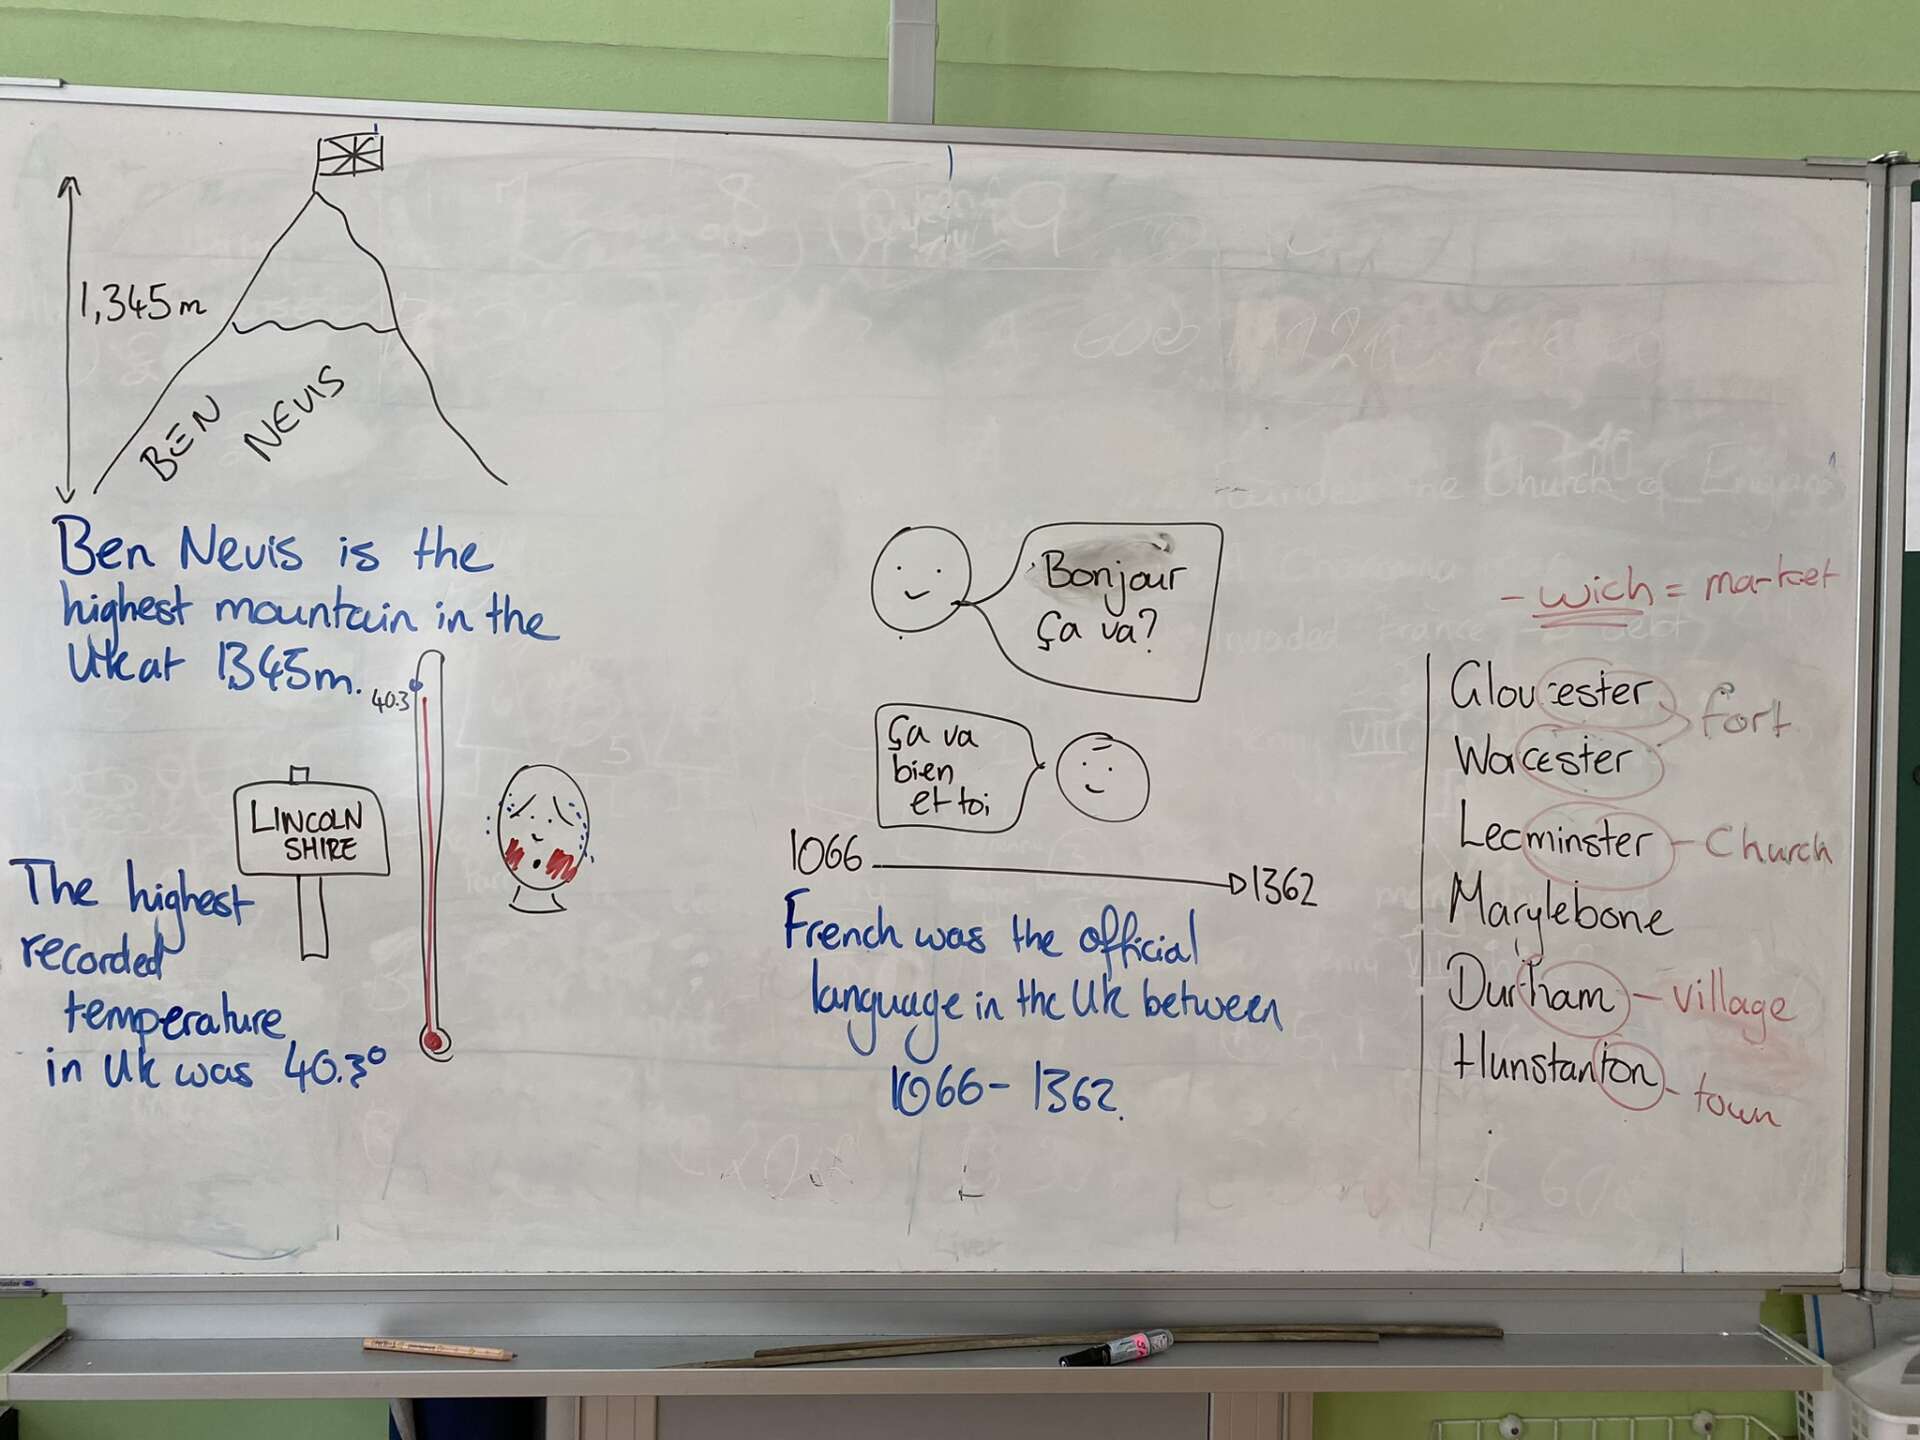 1,345m
BEN
NEVIS
Ben Nevis is the
highest mountain in the
Uk at 1345m.
40.3
LINCOLN
SHIRE
The highest
recorded
temperature
in Uk was 40.3°
Bonjour
Ça va?
Ça va
bien
et toi
1066
1362
French was the official
language in the Uk between
1066 - 1362.
- wich = market
Gloucester
fort
Worcester
Leominster - Church
Marylebone
Durham - village
Hunstanton - town